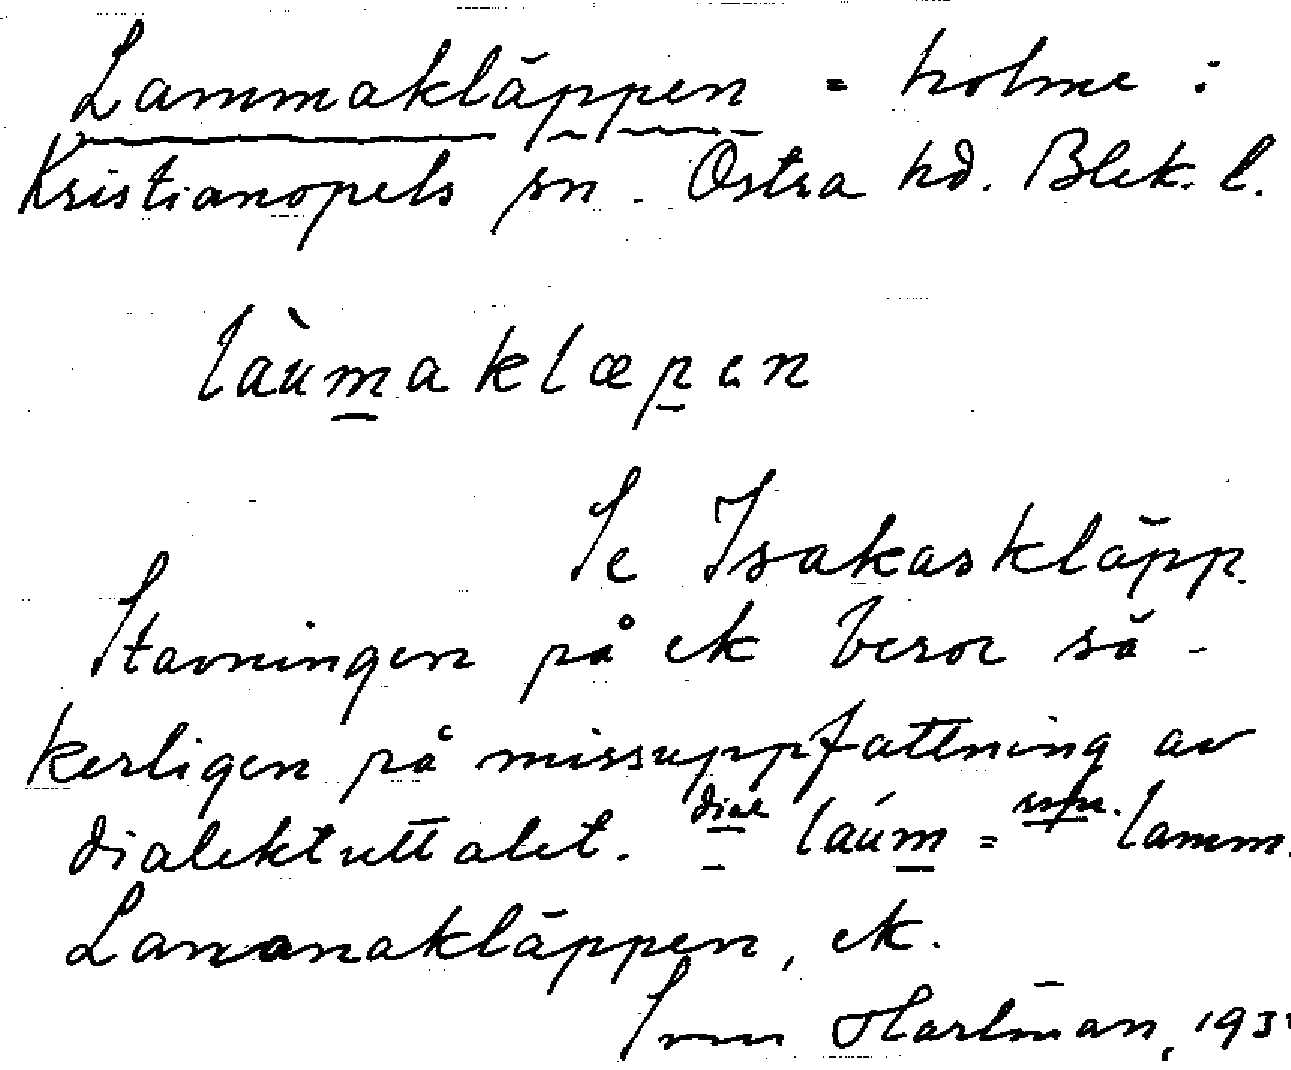 Lammakläppen = holme i
Kristianopels sn. Östra hd. Blek. l.
làumaklæpen
Se Isakaskläpp.
Stavningen på ek beror sä-
kerligen på missuppfattning av
dialektuttalet. dial láum = lamm.
Lananakläppen, ek.
Hartman, 193